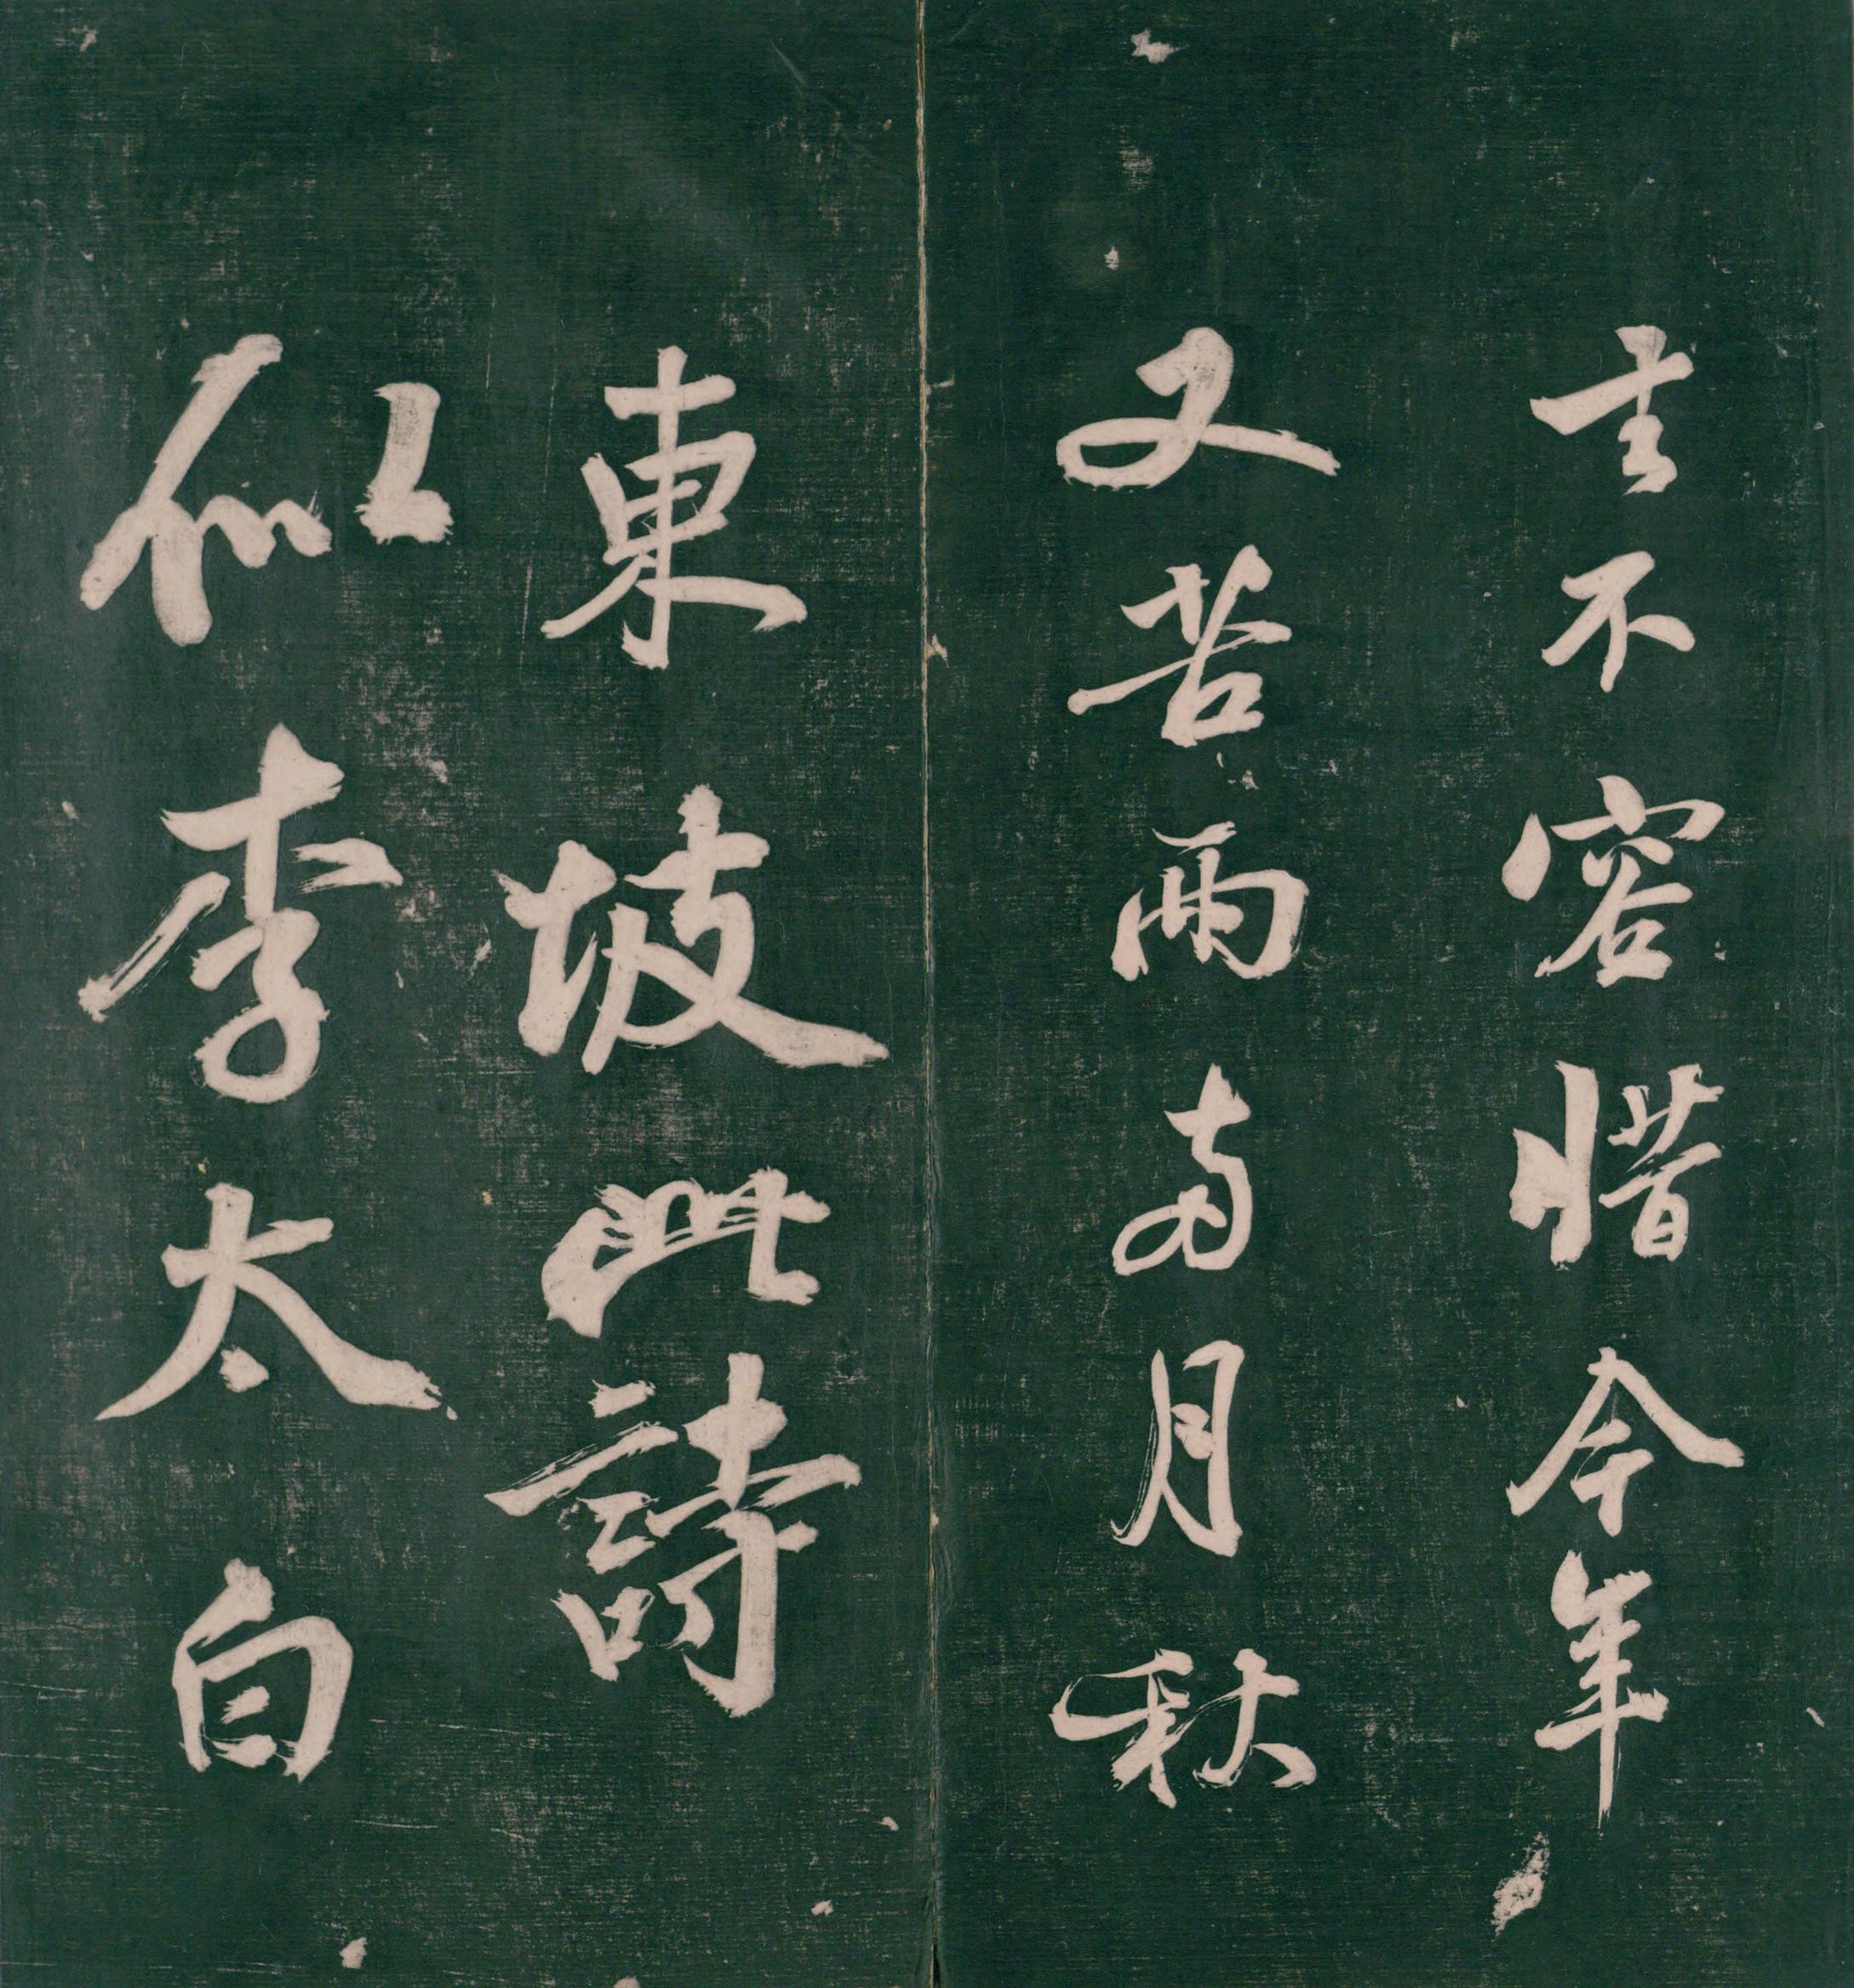 去不容惜今年
又苦雨兩月秋
東坡此詩
似李太白